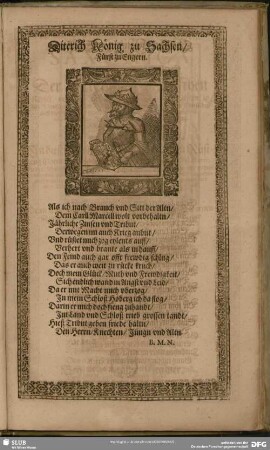 Diterich König zu Sachsen/
Fürst zu Engern.
Als ich nach Brauch vnd Sitt der Alten/
Dem Carll Marcell wolt vorbehalten/
Jährliche Zinsen vnd Tribut/
Deswegen im auch Krieg anbut/
Vnd rüstet mich zog eylents auff/
Verhert vnd brante als in hauff/
Den Feind auch gar offt frewdig schlug/
Das er auch weit zu rücke
Doch mein Glück/ Muth vnd Frewdigkeit/
Sich endlich wand in Angst vnd Leid/
Da er mit Macht mich vberzog/
Zu mein Schloß
Darin er mich doch fieng zuhandt/
Im Land vnd Schloß trieb grossen
Hieß Tribut geben friede haltn/
Den Herrn/ Knechten/ Jungn vnd Altn
B. M. N.
SLUB